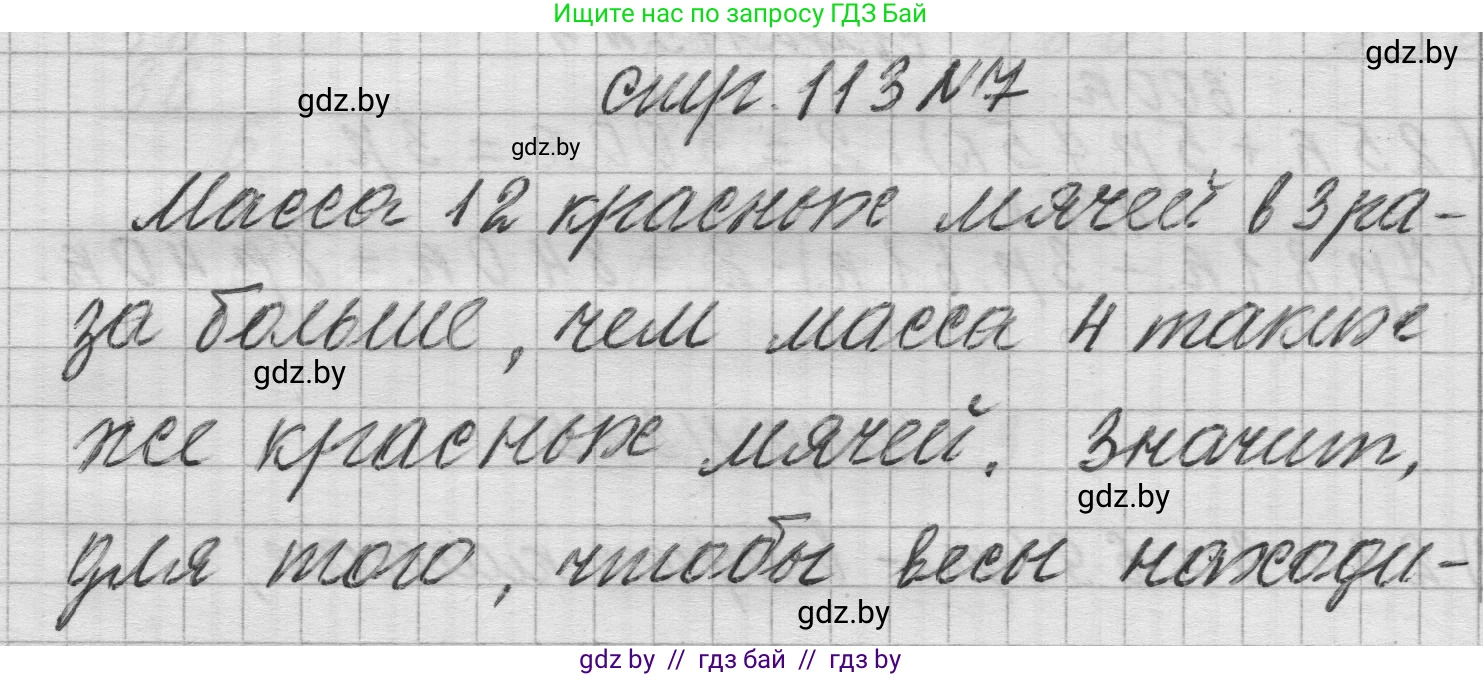 Ищите нас по запросу ГДЗ Бай
gdz.by
стр. 113 №7
gdz.by
gdz.by
Масса 12 красных мячей в 3 ра-
за больше, чем масса 4 таких
gdz.by
же красных мячей. Значит,
gdz.by
для того, чтобы весы находи-
gdz.by
gdz by // гдз бай // гдз by